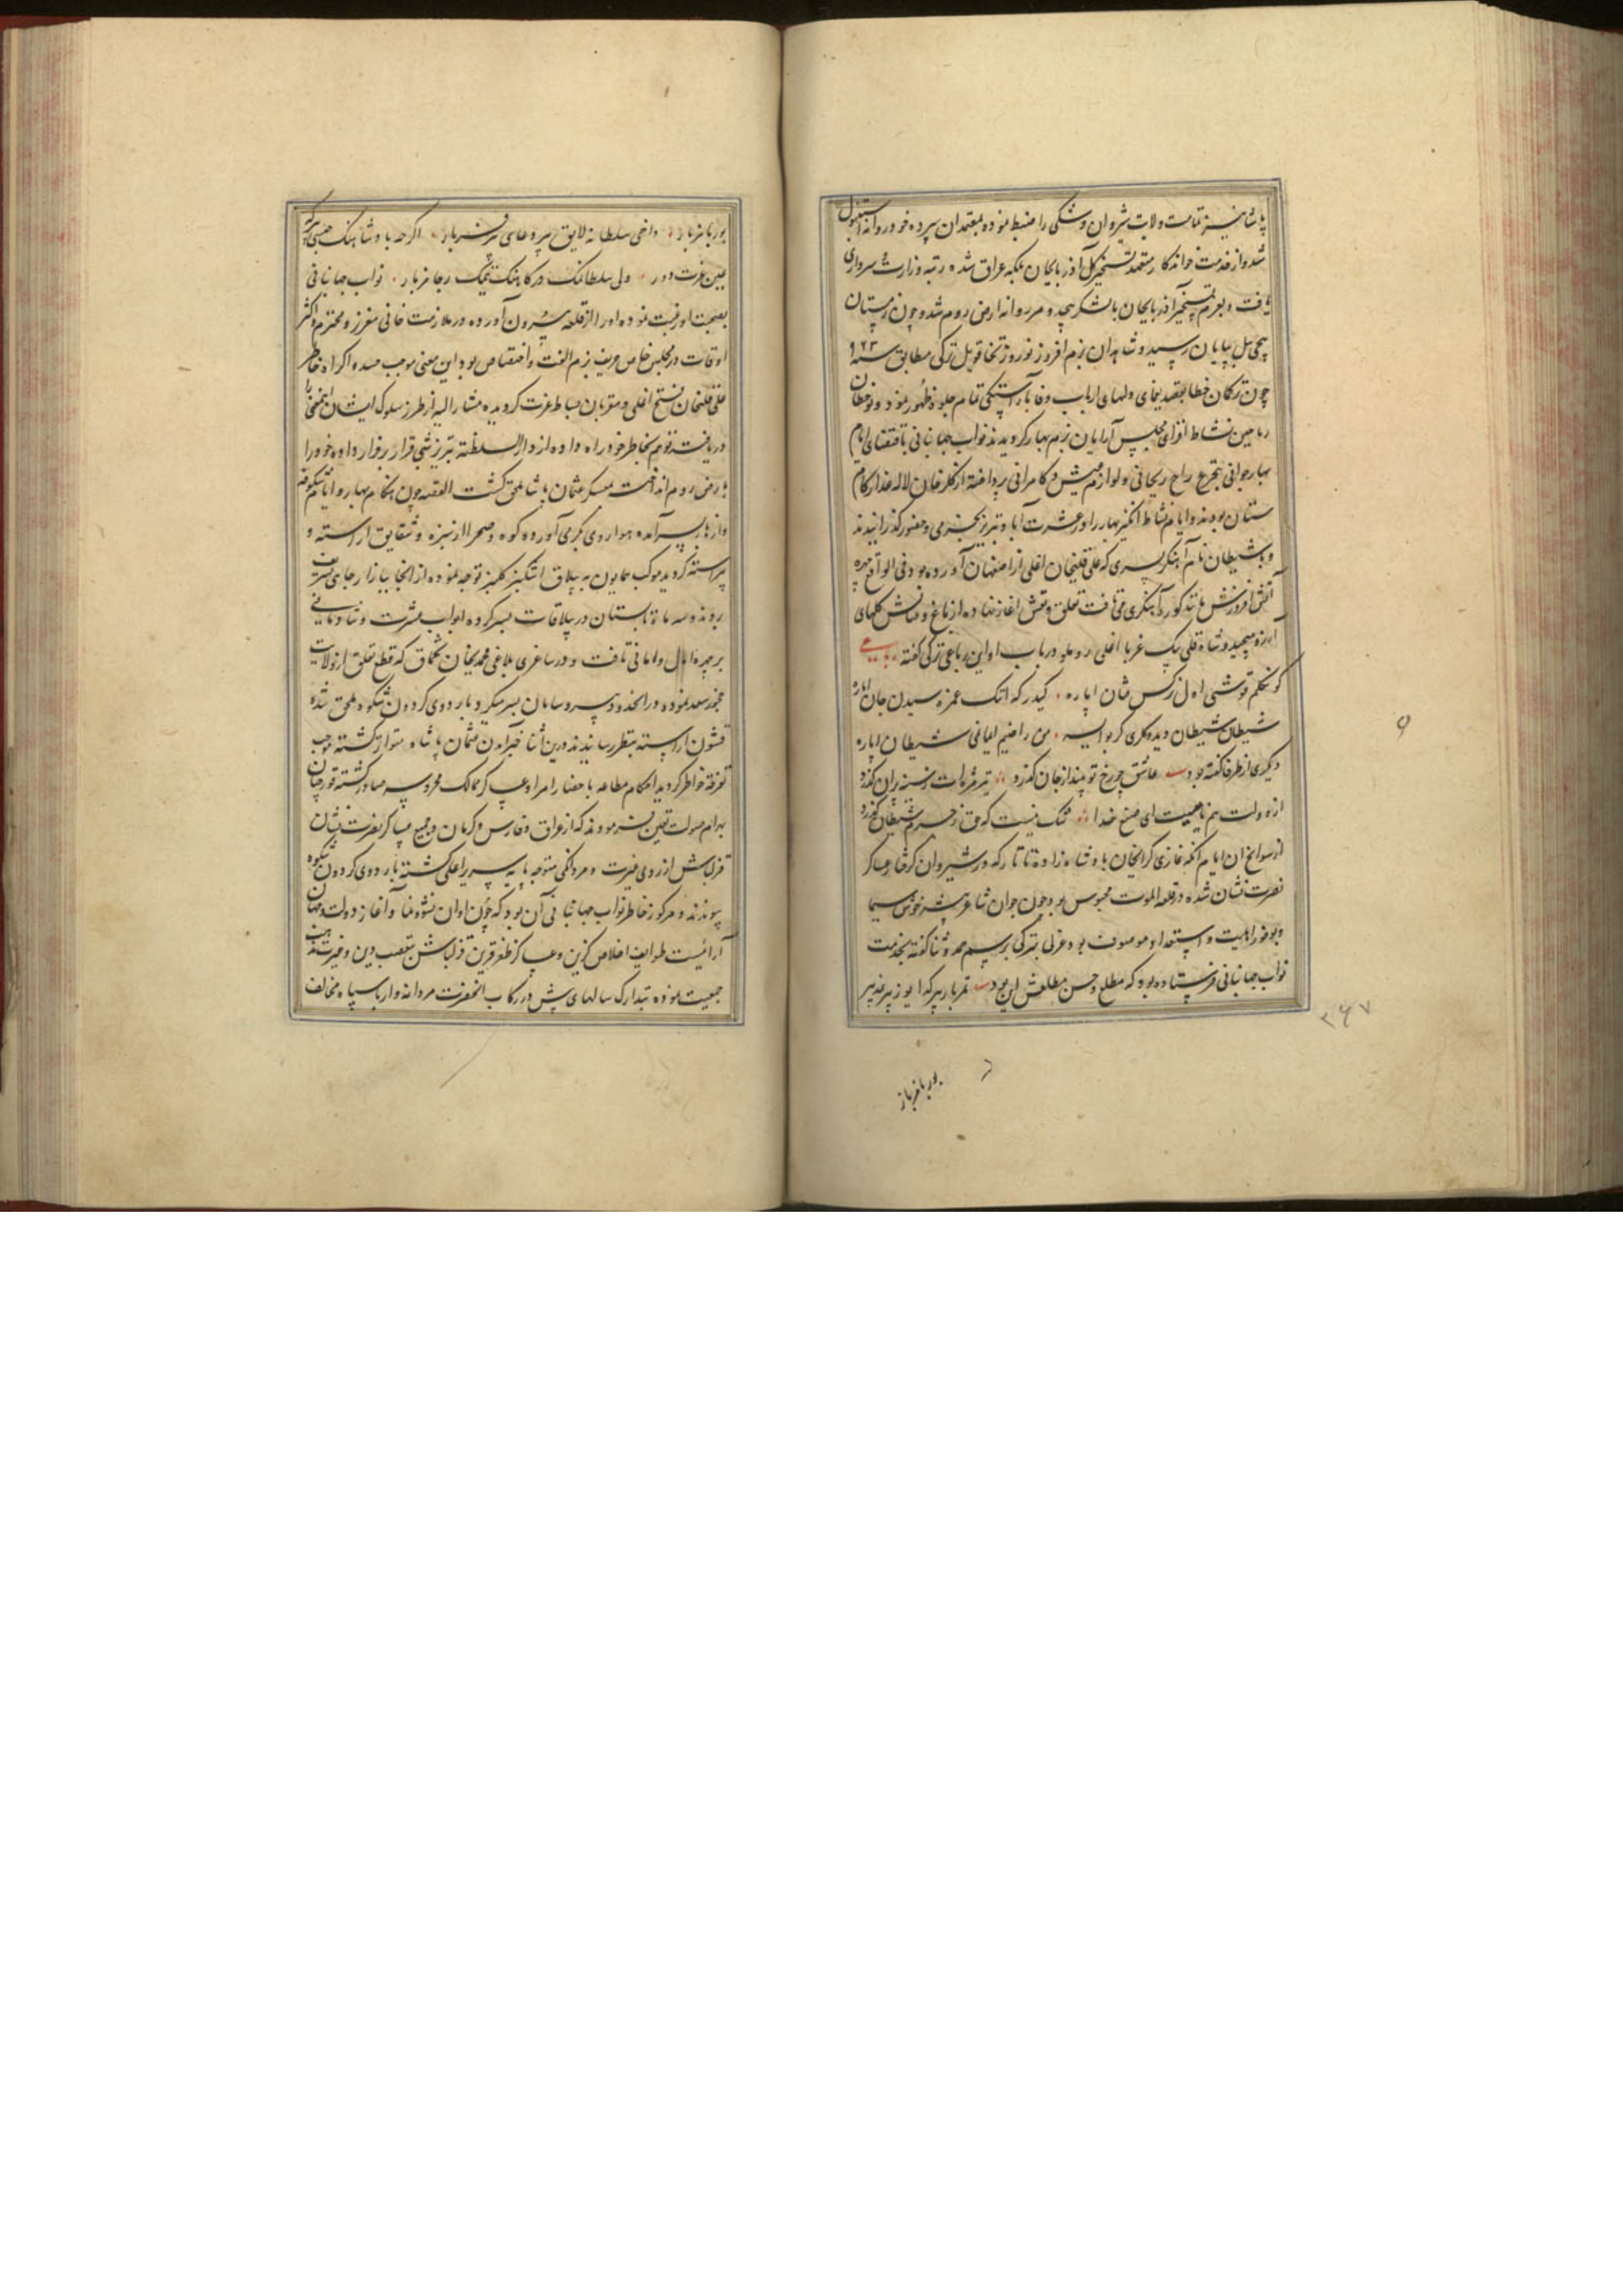 پاشا نیز تمامت ولایت شیروان و شکی را ضبط نموده بمعتمدان سپرده خود روانه استنبول
شد و از خدمت خواندکار متعهد تسخیر کل آذربایجان بلکه عراق شده رتبه وزارت و سرداری
یافت و بعزم تسخیر آذربایجان با لشکر بیحد و مر روانه ارض روم شد و چون زمستان
پیچی ئیل بپایان رسید و شاهدان بزم افروز نوروز تخاقوی ئیل ترکی مطابق سنه ۹۶۳
چون ترکان خطا بقصد یغمای دلهای ارباب وفا بآراستگی تمام جلوه ظهور نمود و نوخطان
ریاحین نشاط افزای مجلس آرایان بزم بهار گردیدند نواب جهانبانی باقتضای ایام
بهار جوانی بتجرع راح ریحانی و لوازم عیش و کامرانی پرداخته از گلرخان لاله عذار کام
ستان بودند و ایام نشاط انگیز بهار را در عشرت آباد تبریز بخرمی و حضور گذرانیدند
و با شیطان نام آهنگر پسری که علی قلیخان اغلی از اصفهان آورده بود فی الواقع چهره
آتش افروزش مانند کوره آهنگری می تافت تعلق و تعشق اغاز نهاده از باغ وصالش گلهای
آرزو میچید و شاه قلی بیک غربا اغلی روملو در باب او این رباعی ترکی گفته رباعی
کونکلم قوشنی اول نرکس فتان اپاره کیدرکه انک غمزه سیدن جان اپاره
شیطان شیطان دیدوکلری کر بو ایسه من راضیم ایمانی شیطان اپاره
دیگری از ظرفا گفته بود بیت عاشق چو رخ تو بیند از جان گذرد تیر مژه ات ز سینه پران گذرد
از دولت هم نامیت ای صنع خدا شک نیست که حق ز جرم شیطان گذرد
از سوانح ان ایام آنکه غازی کرایخان پادشاه زاده تاتار که در شیروان گرفتار عساکر
نصرت نشان شده در قلعه الموت محبوس بود چون جوان شاعر پیشه خوش سیما
و بوفور اهلیت و استعداد موصوف بود غزلی بترکی برسم مدح و ثنا گفته بخدمت
نواب جهانبانی فرستاده بود که مطلع و حسن مطلعش این بود بیت
بور یا غربار
۳۶۷
بور یا غربار
بصحبت او رغبت نموده او را از قلعه بیرون آورده در ملازمت خانی معزز و محترم و اکثر
اوقات در مجلس خاص حریف بزم الفت و اختصاص بود این معنی موجب حسد و اکراه خاطر
علی قلیخان فتح اغلی و مقربان بساط عزت گردیده مشار الیه از طرز سلوک ایشان اینمعنی را
دریافته توهم بخاطر خود راه داده از دار السلطنه تبریز شبی قرار بر فرار داده خود را
بارض روم انداخت بعسکر عثمان پاشا ملحق گشت القصه چون هنکام بهار و ایام شکوفه
و ازهار بسر آمده هوا روی بگرمی آورده کوه و صحرا از سبزه و شقایق اراسته و
پیراسته گردید موکب همایون به ییلاق اشکنبر کلیبر توجه نموده از انجا بیازارجای تشریف
بردند و سه ماه تابستان در ییلاقات بسر کرده ابواب عشرت و شادمانی
بر چهره امال و امانی تافت و در ساغری بلاغی محمدیخان تخماق که قطع تعلق از ولایت
چخور سعد نموده در انحدود بی سر و سامان بسر میکرد باردوی گردون شکوه ملحق شده
قشون اراسته بنظر رسانیدند درین اثنا خبر آمدن عثمان پاشا متواتر گشته موجب
تفرقه خاطر گردید احکام مطاعه باحضار امرا و عساکر ممالک محروسه صادر گشته قورچیان
بهرام صولت تعین فرمودند که از عراق و فارس و کرمان و جمیع عساکر نصرت نشان
قزلباش از روی غیرت و مردانگی متوجه پایه سریر اعلی گشته باردوی گردون شکوه
پیوندند و مرکوز خاطر نواب جهانبانی آن بود که چون اوان نشو و نما و آغاز دولت و جهان
آرائیست طوایف اخلاص گزین و عساکر ظفر قرین قزلباش بتعصب دین و غیرت مذهب
جمعیت نموده بتدارک سالهای پیش در رکاب انحضرت مردانه وار با سپاه مخالف